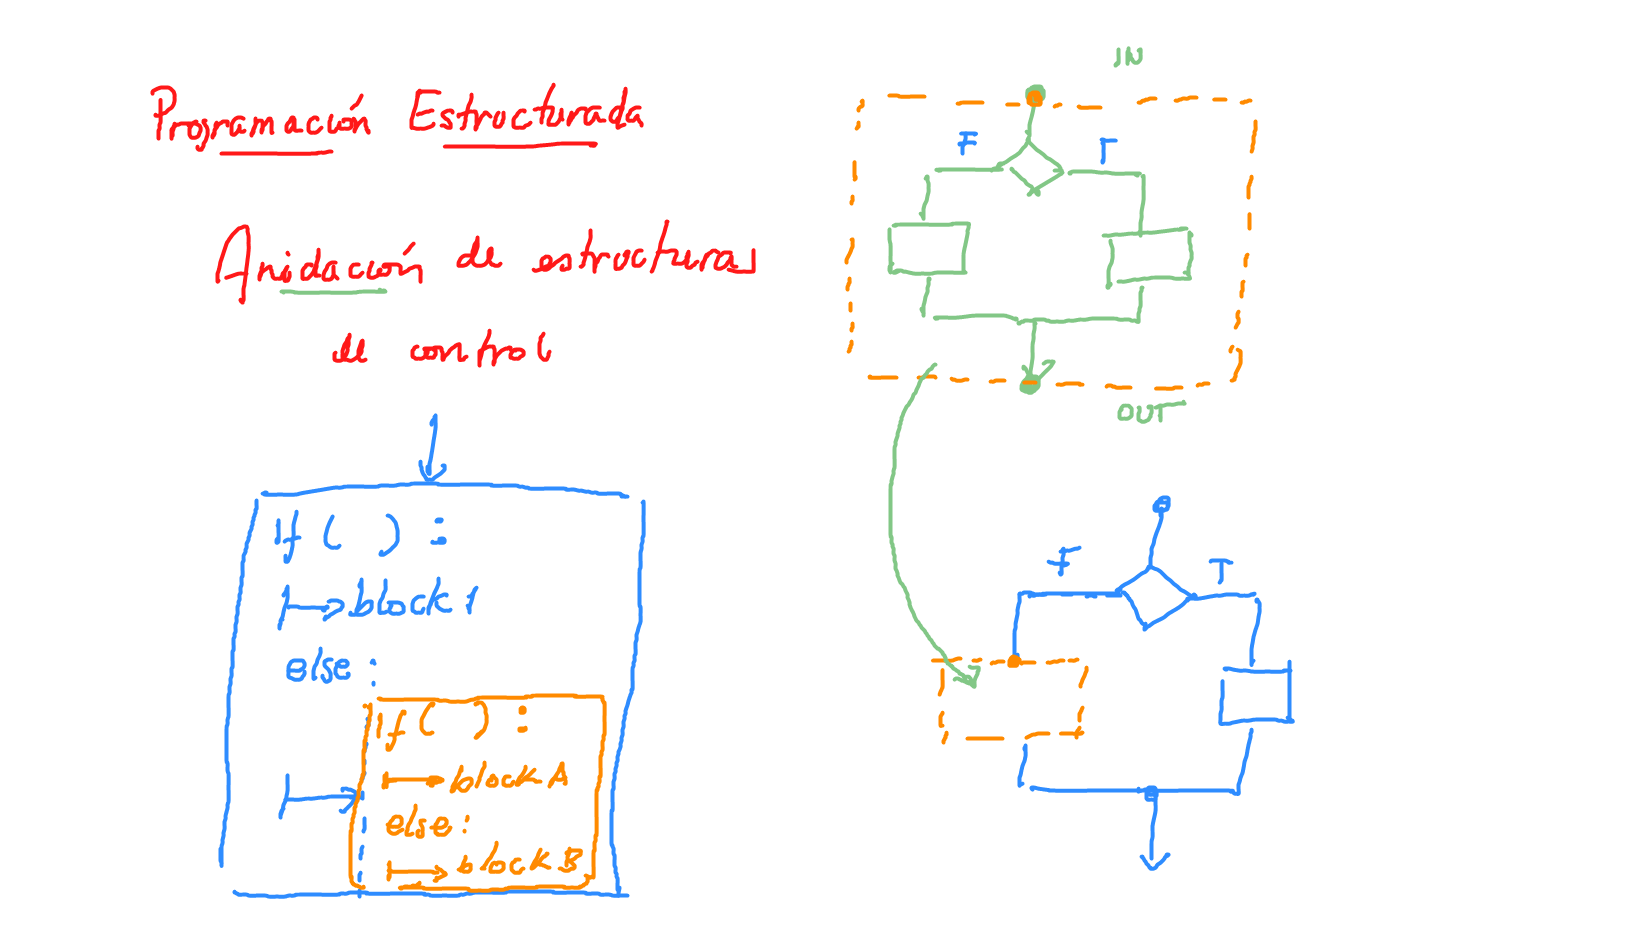 Programación Estructurada
Anidación de estructuras
de control
if ( ) :
block 1
else :
if ( ) :
block A
else :
block B
IN
F T
OUT
F T